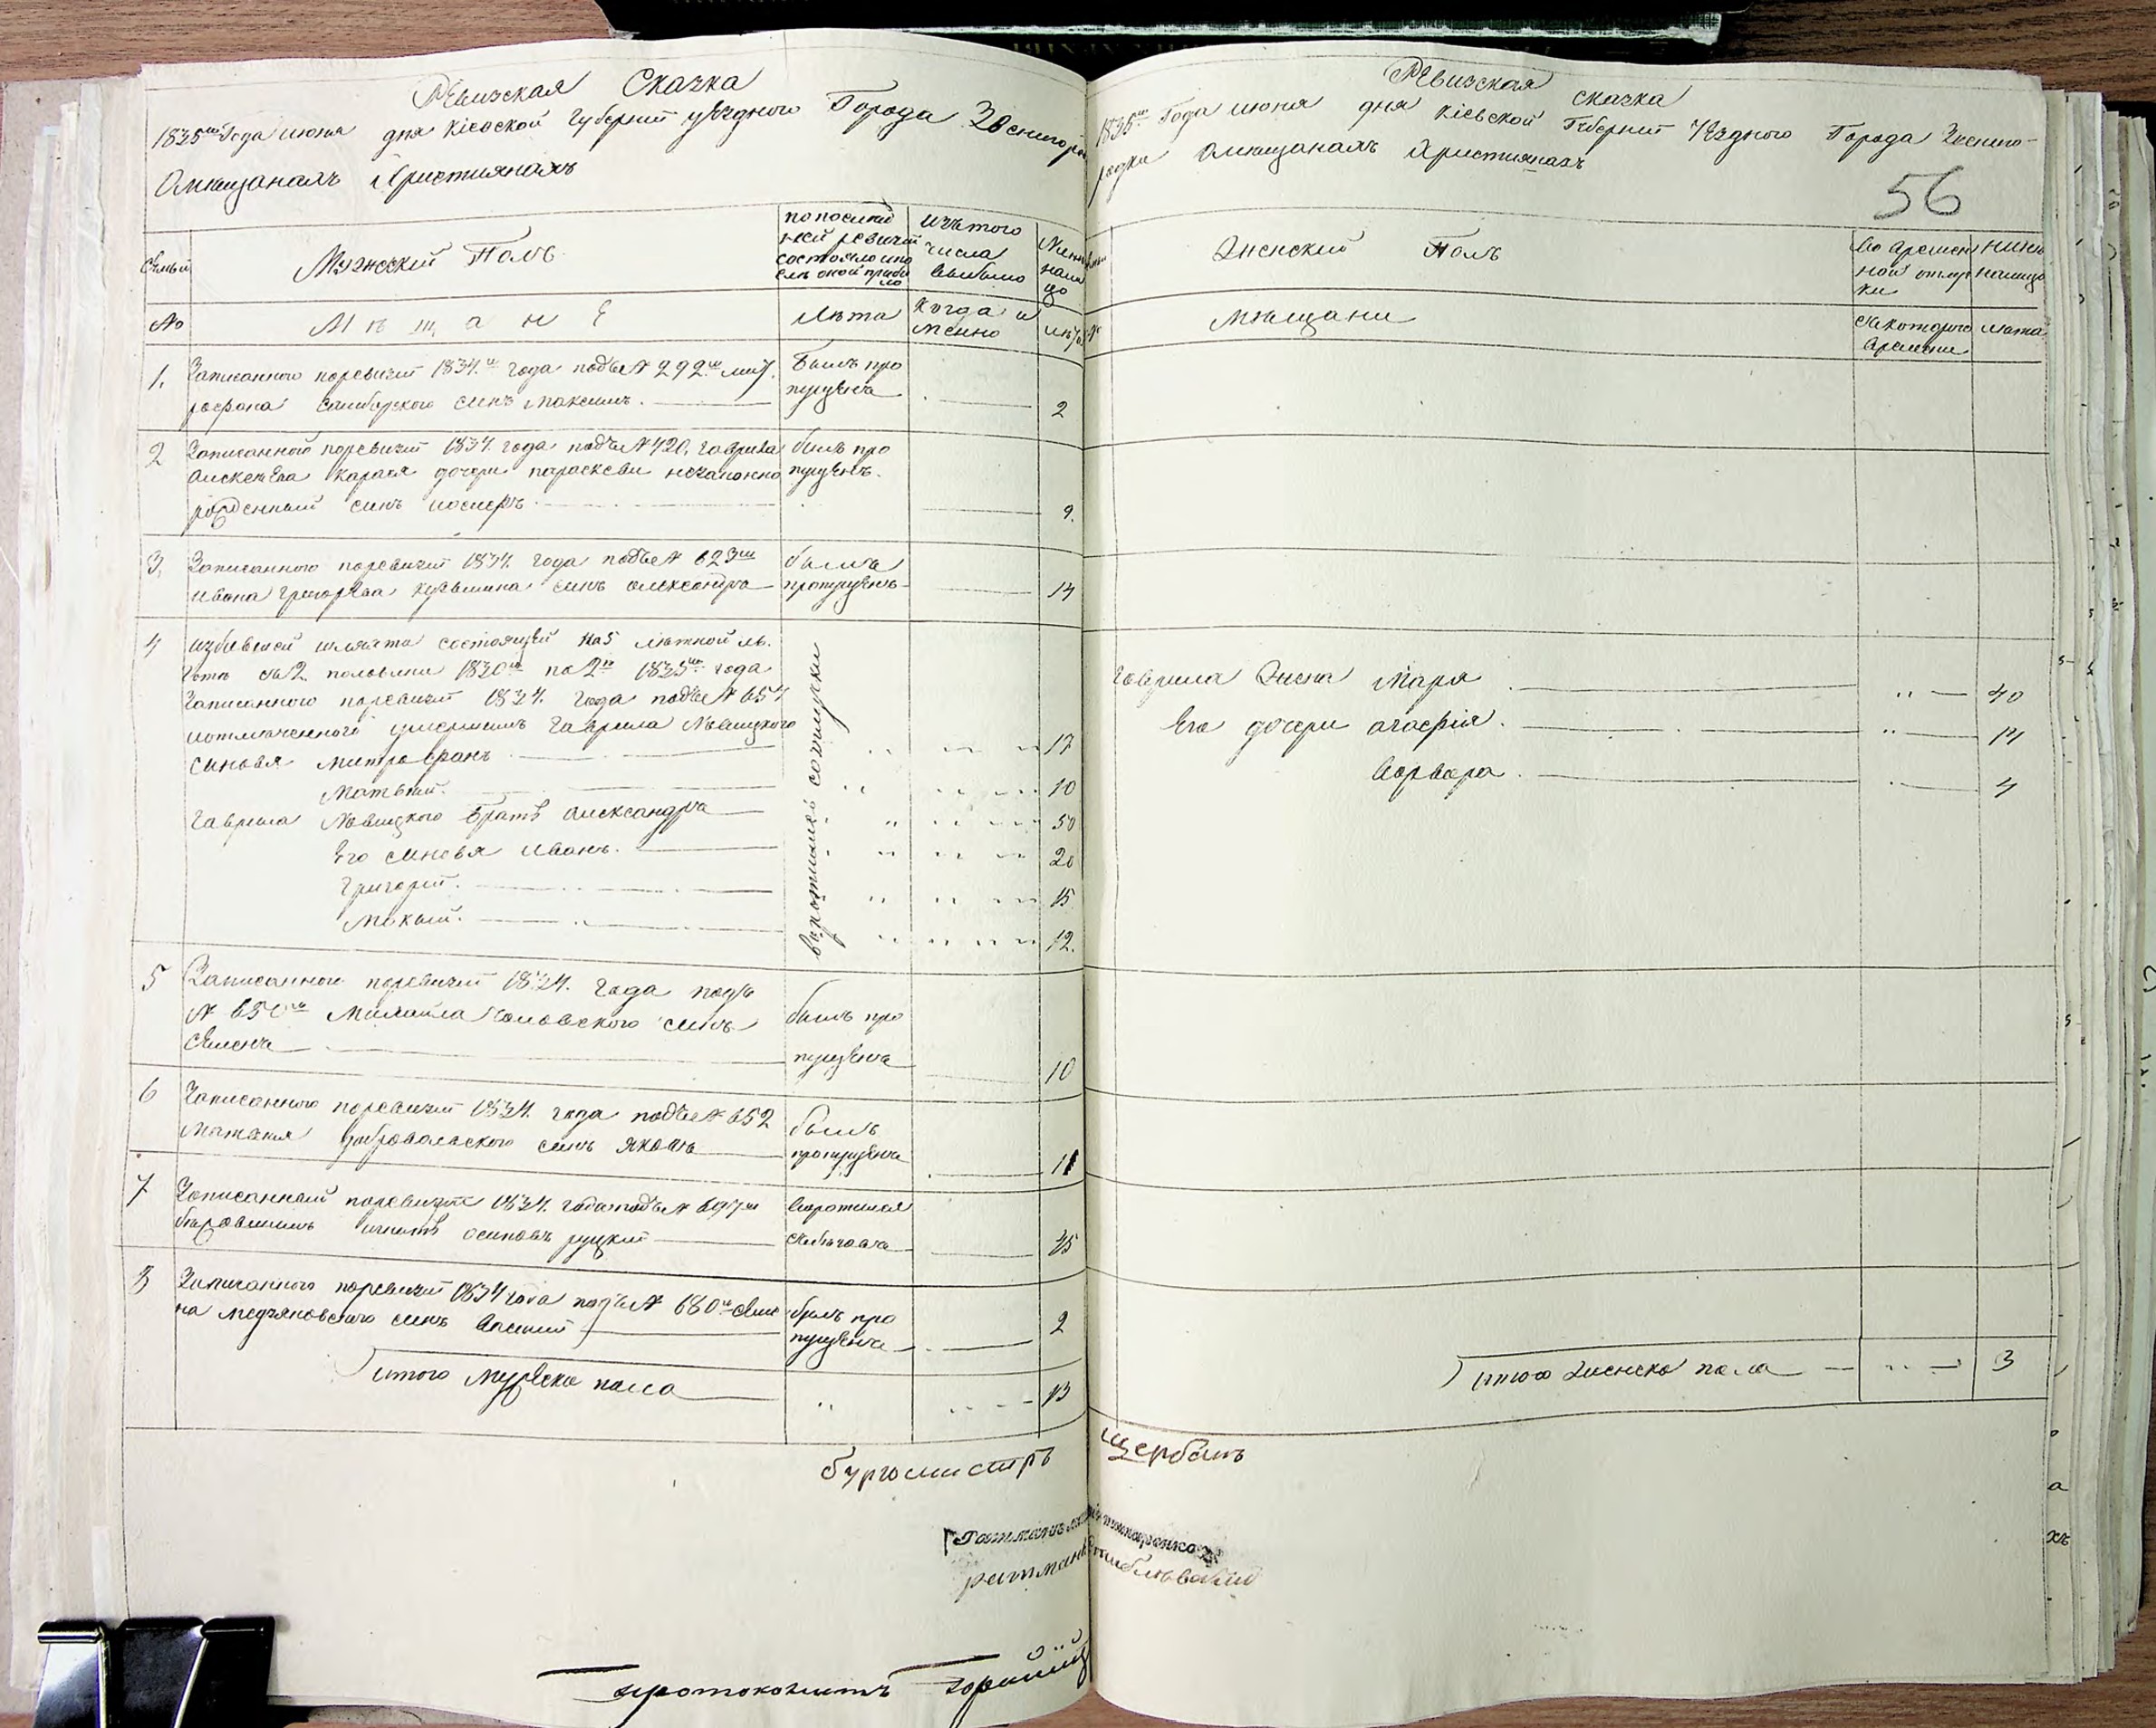 Ревизская Сказка
1835го Года июня дня Кіевской Губерніи уезднаго Города Звенигоро
О мещанахъ Християнахъ
Семьи
Мужеский Полъ
по послед
ней ревизіи
состояло и по
слѣ оной прибы
ло
изъ того
числа
выбыло
Ныне
на ли
цо
№
М ѣ щ а н е
Лѣта
Когда и
менно
лѣта
1. Записанного по ревизіи 1834го года подъ № 292м мит
рофана Самбурского синъ максимъ.
Былъ про
пущенъ
2
2 Записанной по ревизіи 1834 года подъ № 420, гаврила
Алексеева Карася дочери параскеви незаконно
рожденный синъ иосифъ
билъ про
пущенъ.
9.
3, Записанного по ревизіи 1834. года подъ № 623м
ивана григорьева Кузьмина синъ александръ
былъ
пропущенъ
14
4 из бывшей шляхты состоящей на 5 летной ль
готе съ 2 половини 1830го по 2ю 1835го года
Записанного по ревизіи 1834. года подъ № 657
и отмеченного умершимъ гаврила Левицкого
синовья митрофанъ
17
Матвей.
10
гаврила Левицкого братъ александръ
50
Его синовья иванъ.
20
Григорій.
15
Мокий.
12.
воротились с отлучки
5 Записанного по ревизіи 1834. года подъ
№ 650м Михаила сольвского синъ
Семенъ
былъ про
пущенъ
10
6 Записанного по ревизіи 1834. года подъ № 652
Матвия Добровольского синъ Яковъ
былъ
пропущенъ
11
7 Записанный по ревизіи 1834. года подъ № 697м
бежавшимъ игнатъ осиповъ руцкий
воротился
с побеговъ
35
8 Записанного по ревизіи 1834 года подъ № 680м Семе
на медзяновского синъ Василий
былъ про
пущенъ
2
итого мужеска пола
13
бургомистръ Щербань
Ратманъ
ратманъ
Протоколистъ
Ревизская сказка
1835го Года июня дня Кіевской Губерніи Уездного Города Звениго-
родки О мещанахъ Християнахъ
56
Женский Полъ
Во времен
ной отлуч
ки
Ныне
на лицо
Мѣщани
Съ которого
времени
лѣта
Гаврила Жена Маря
40
Его дочери агафія.
14
Варвара.
4
итого женска пола
3